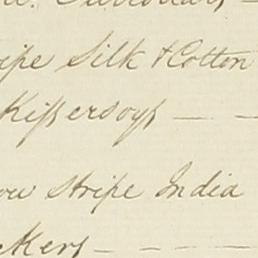 ripe Silk & Cotton
Kissersoys — —
ow Stripe India
ckers — — — —